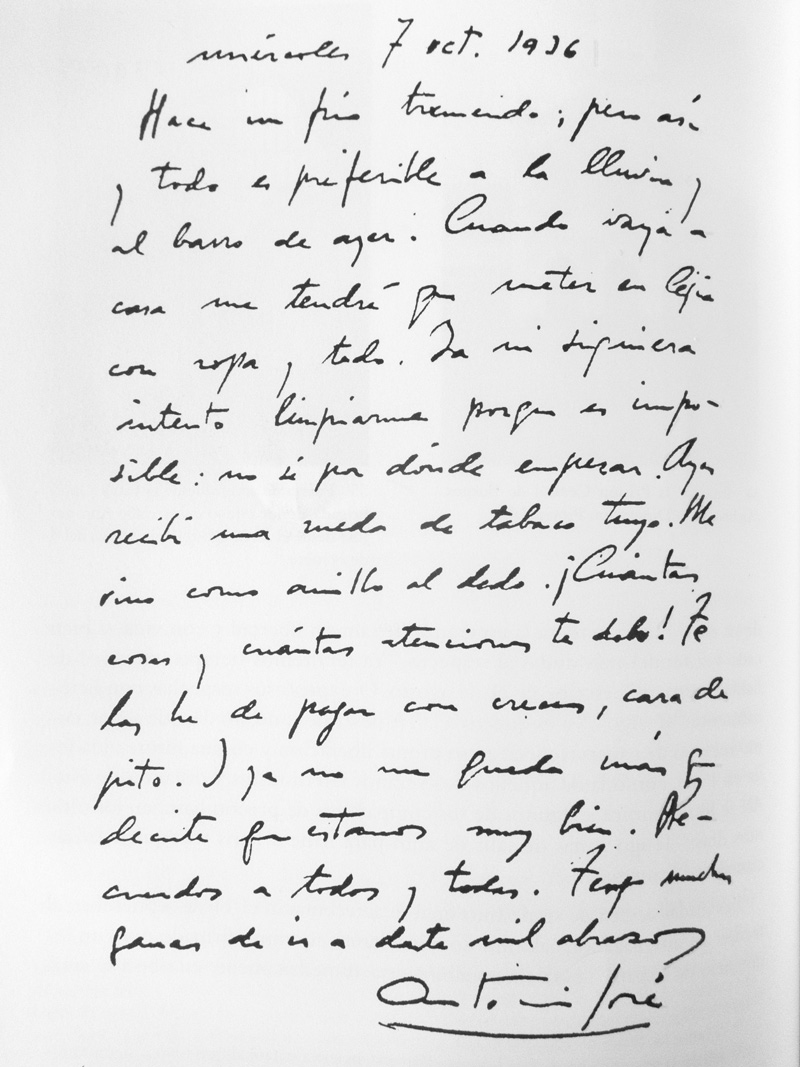 miércoles 7 oct. 1936
Hace un frío tremendo; pero así
y todo es preferible a la lluvia y
al barro de ayer. Cuando vaya a
casa me tendré que meter en lejía
con ropa y todo. Ya ni siquiera
intento limpiarme porque es impo-
sible: no sé por dónde empezar. Ayer
recibí una rueda de tabaco tuyo. Me
vino como anillo al dedo. ¡Cuántas
cosas y cuántas atenciones te debo! Te
las he de pagar con creces, cara de
pito. Y ya no me queda más q
decirte que estamos muy bien. Re-
cuerdos a todos y todas. Tengo muchas
ganas de ir a darte mil abrazos
Antonio José